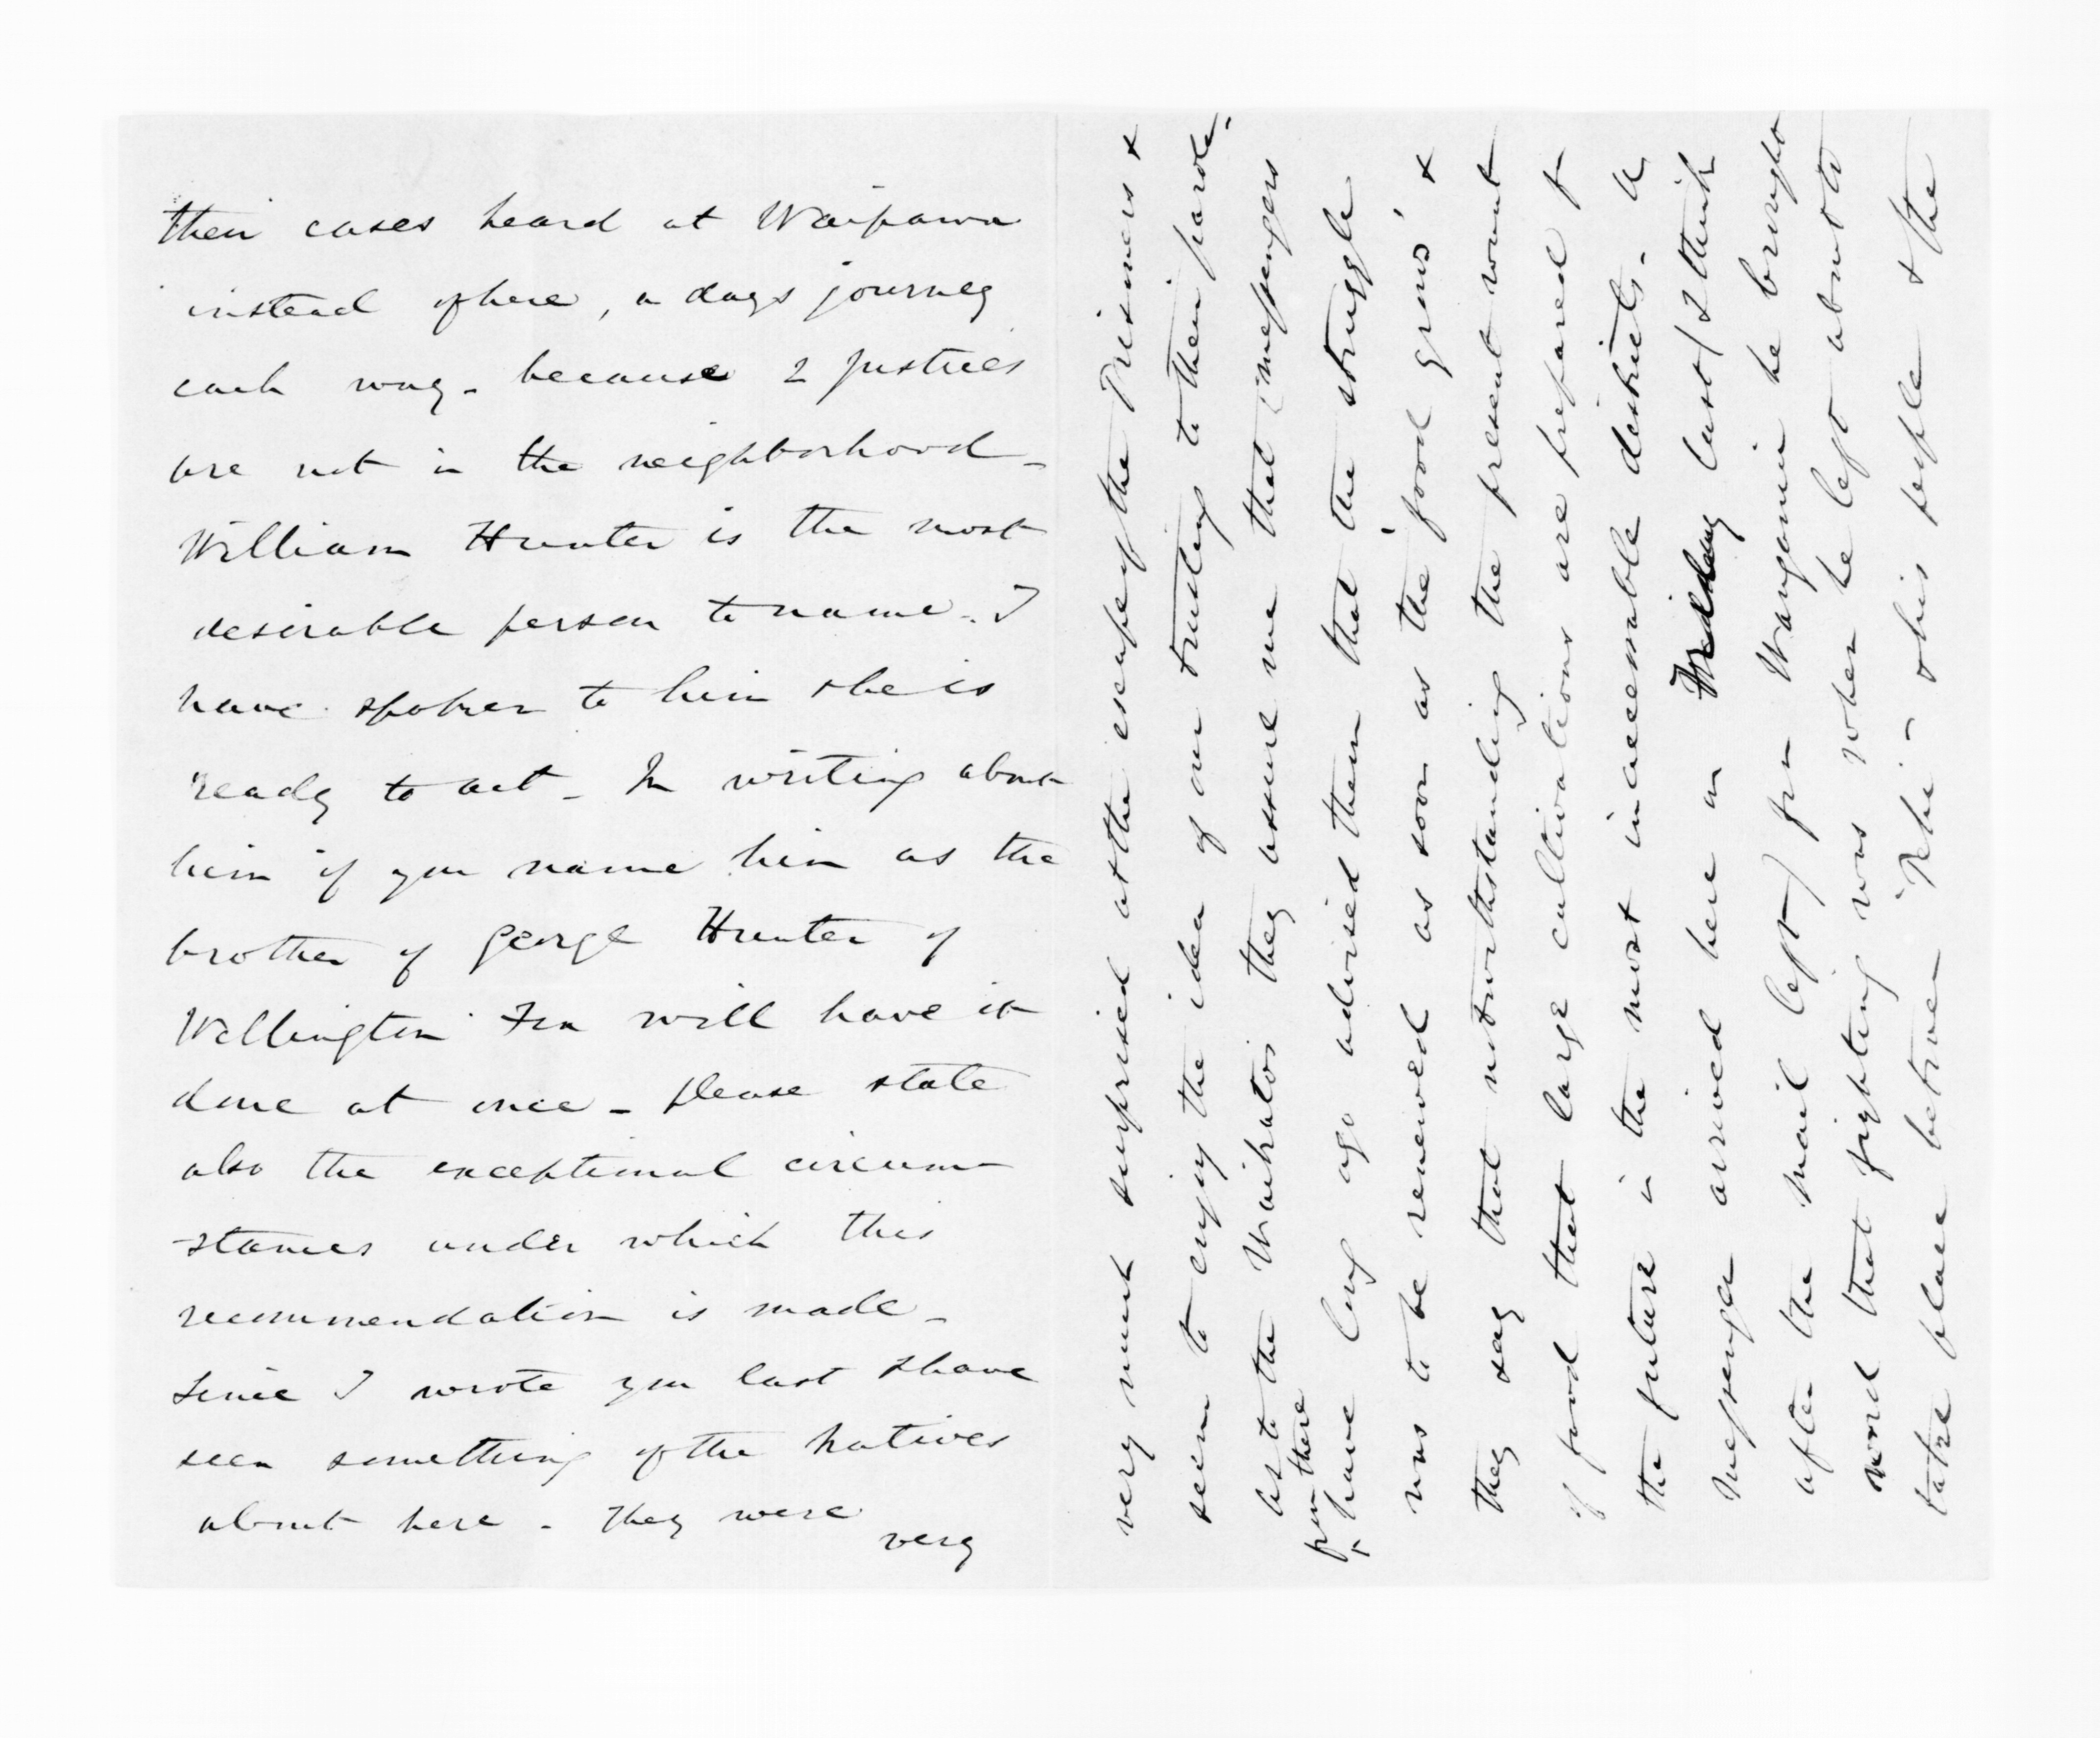 their cases heard at Waipawa
instead of here, a days journey
each way - because 2 Justices
are not in the neighborhood -
William Hunter is the most
desirable person to name - I
have spoken to him & he is
ready to act - In writing about
him if you name him as the
brother of George Hunter of
Wellington Fox will have it
done at once - please state
also the exceptional circum-
stances under which this
recommendation is made -
Since I wrote you last I have
seen something of the natives
about here - They were
very
very much surprised at the escape of the Prisoners &
seem to enjoy the idea of our trusting to their parole -
as to the Waikatos they assure me that (messengers
from there
& have long ago advised them that the struggle
was to be renewed as soon as the 'food grows' &
they say that notwithstanding the present want
of food that large cultivations are prepared for
the future in the most inaccessible districts. A
Messenger arrived here on Wednesday last (I think
after the mail left) from Wanganui he brought
word that fighting was when he left about to
take place between 'Pehi' & his people & the